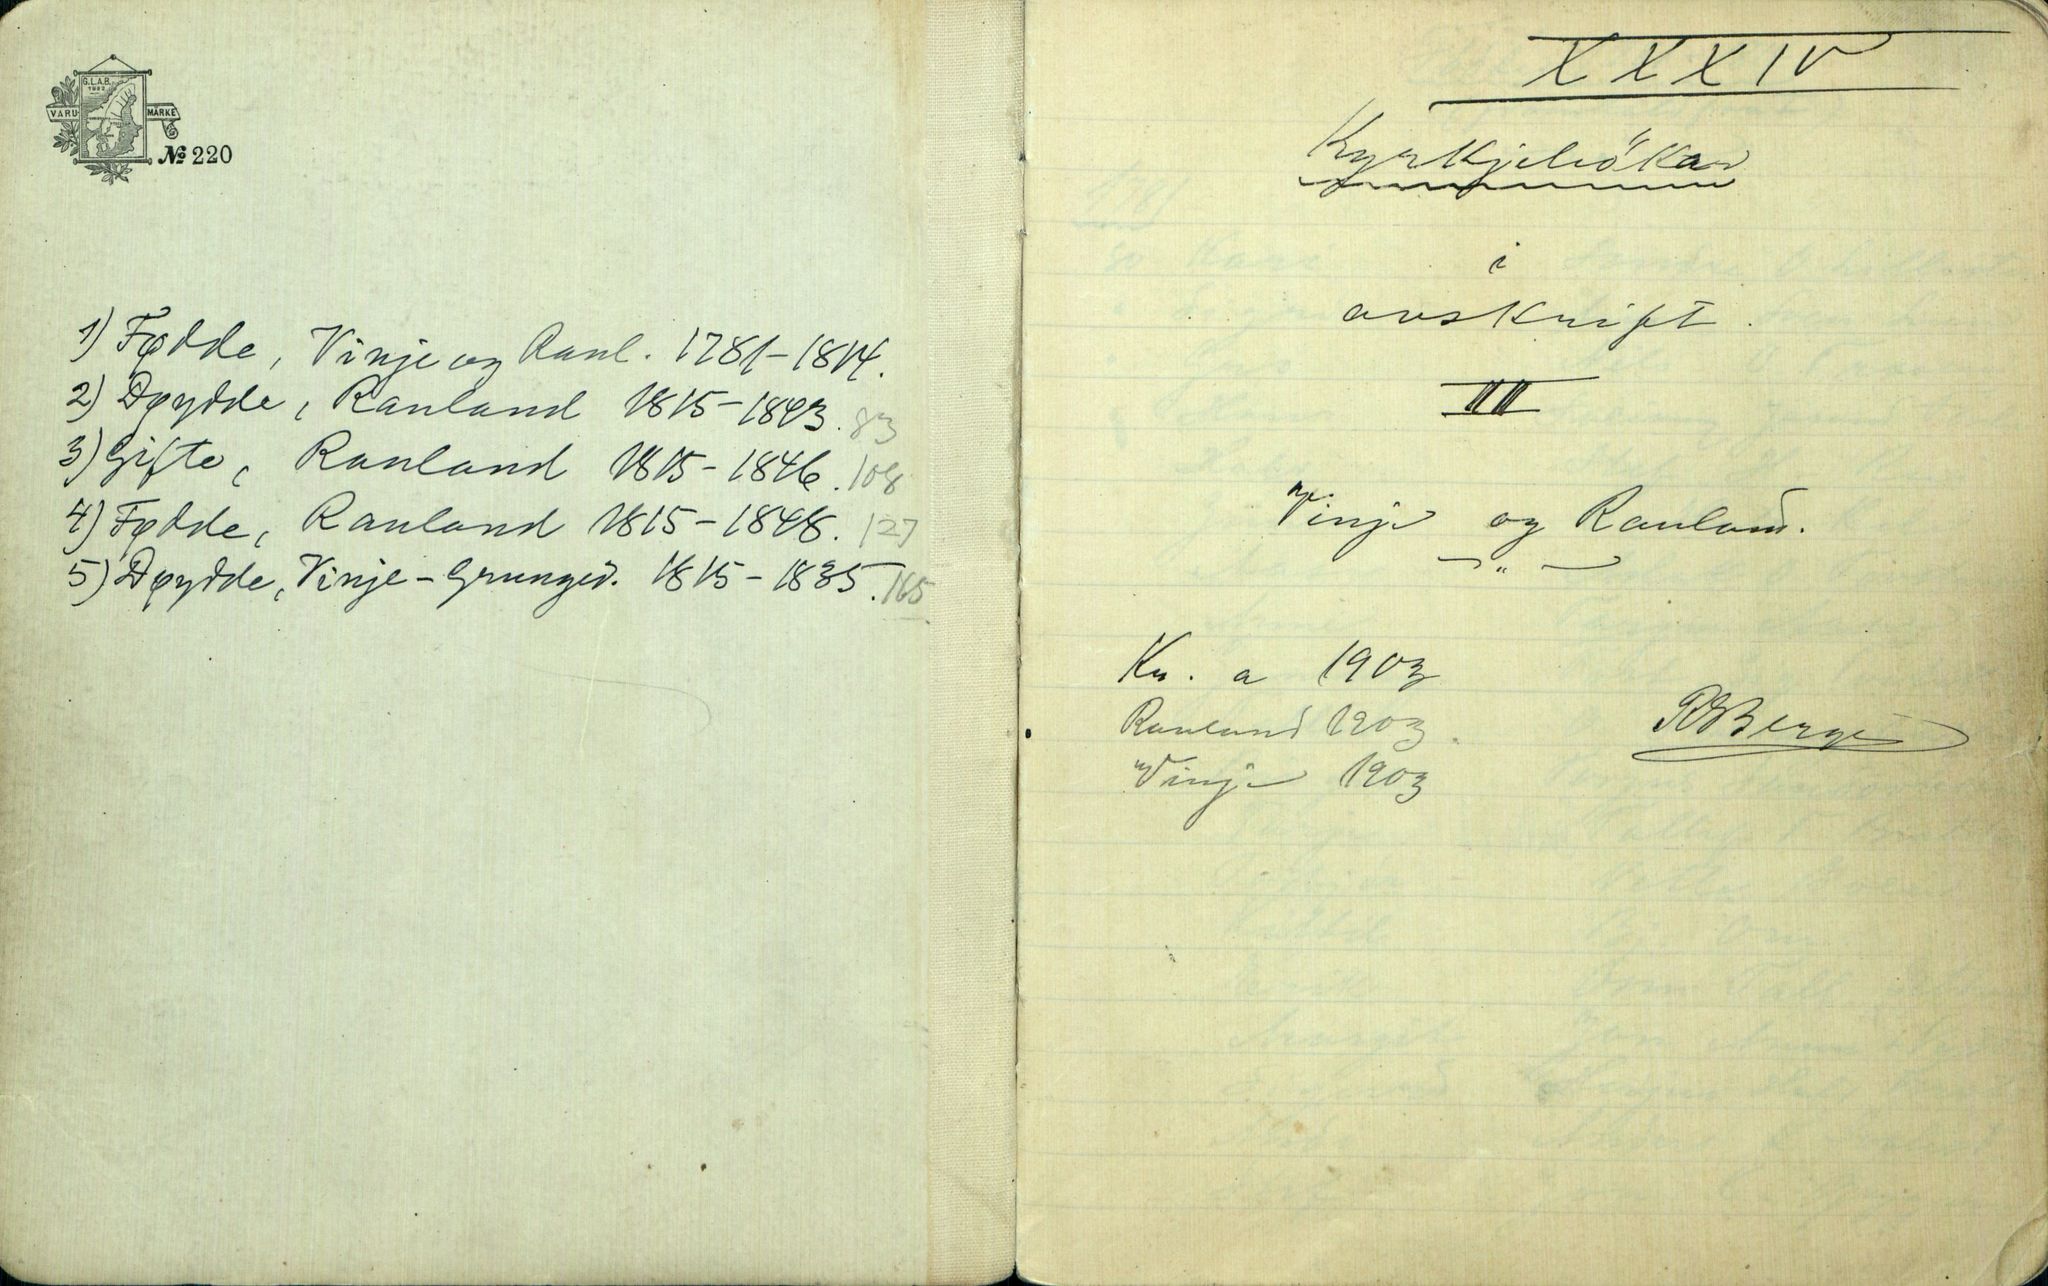 G.L.A.B.
VARU MÄRKE
№ 220
1) Fødde, Vinje og Raul. 1781–1814.
2) Døydde, Rauland 1815–1843. 83
3) Gifte, Rauland 1815–1846. 108
4) Fødde, Rauland 1815–1848. 127
5) Døydde, Vinje–Grunged. 1815–1835. 165
XXXIV
Kyrkjebökar
i
avskrift.
III
Vinje og Rauland.
–„–
Kr. a 1903
Rauland 1903.
Vinje 1903
RBerge